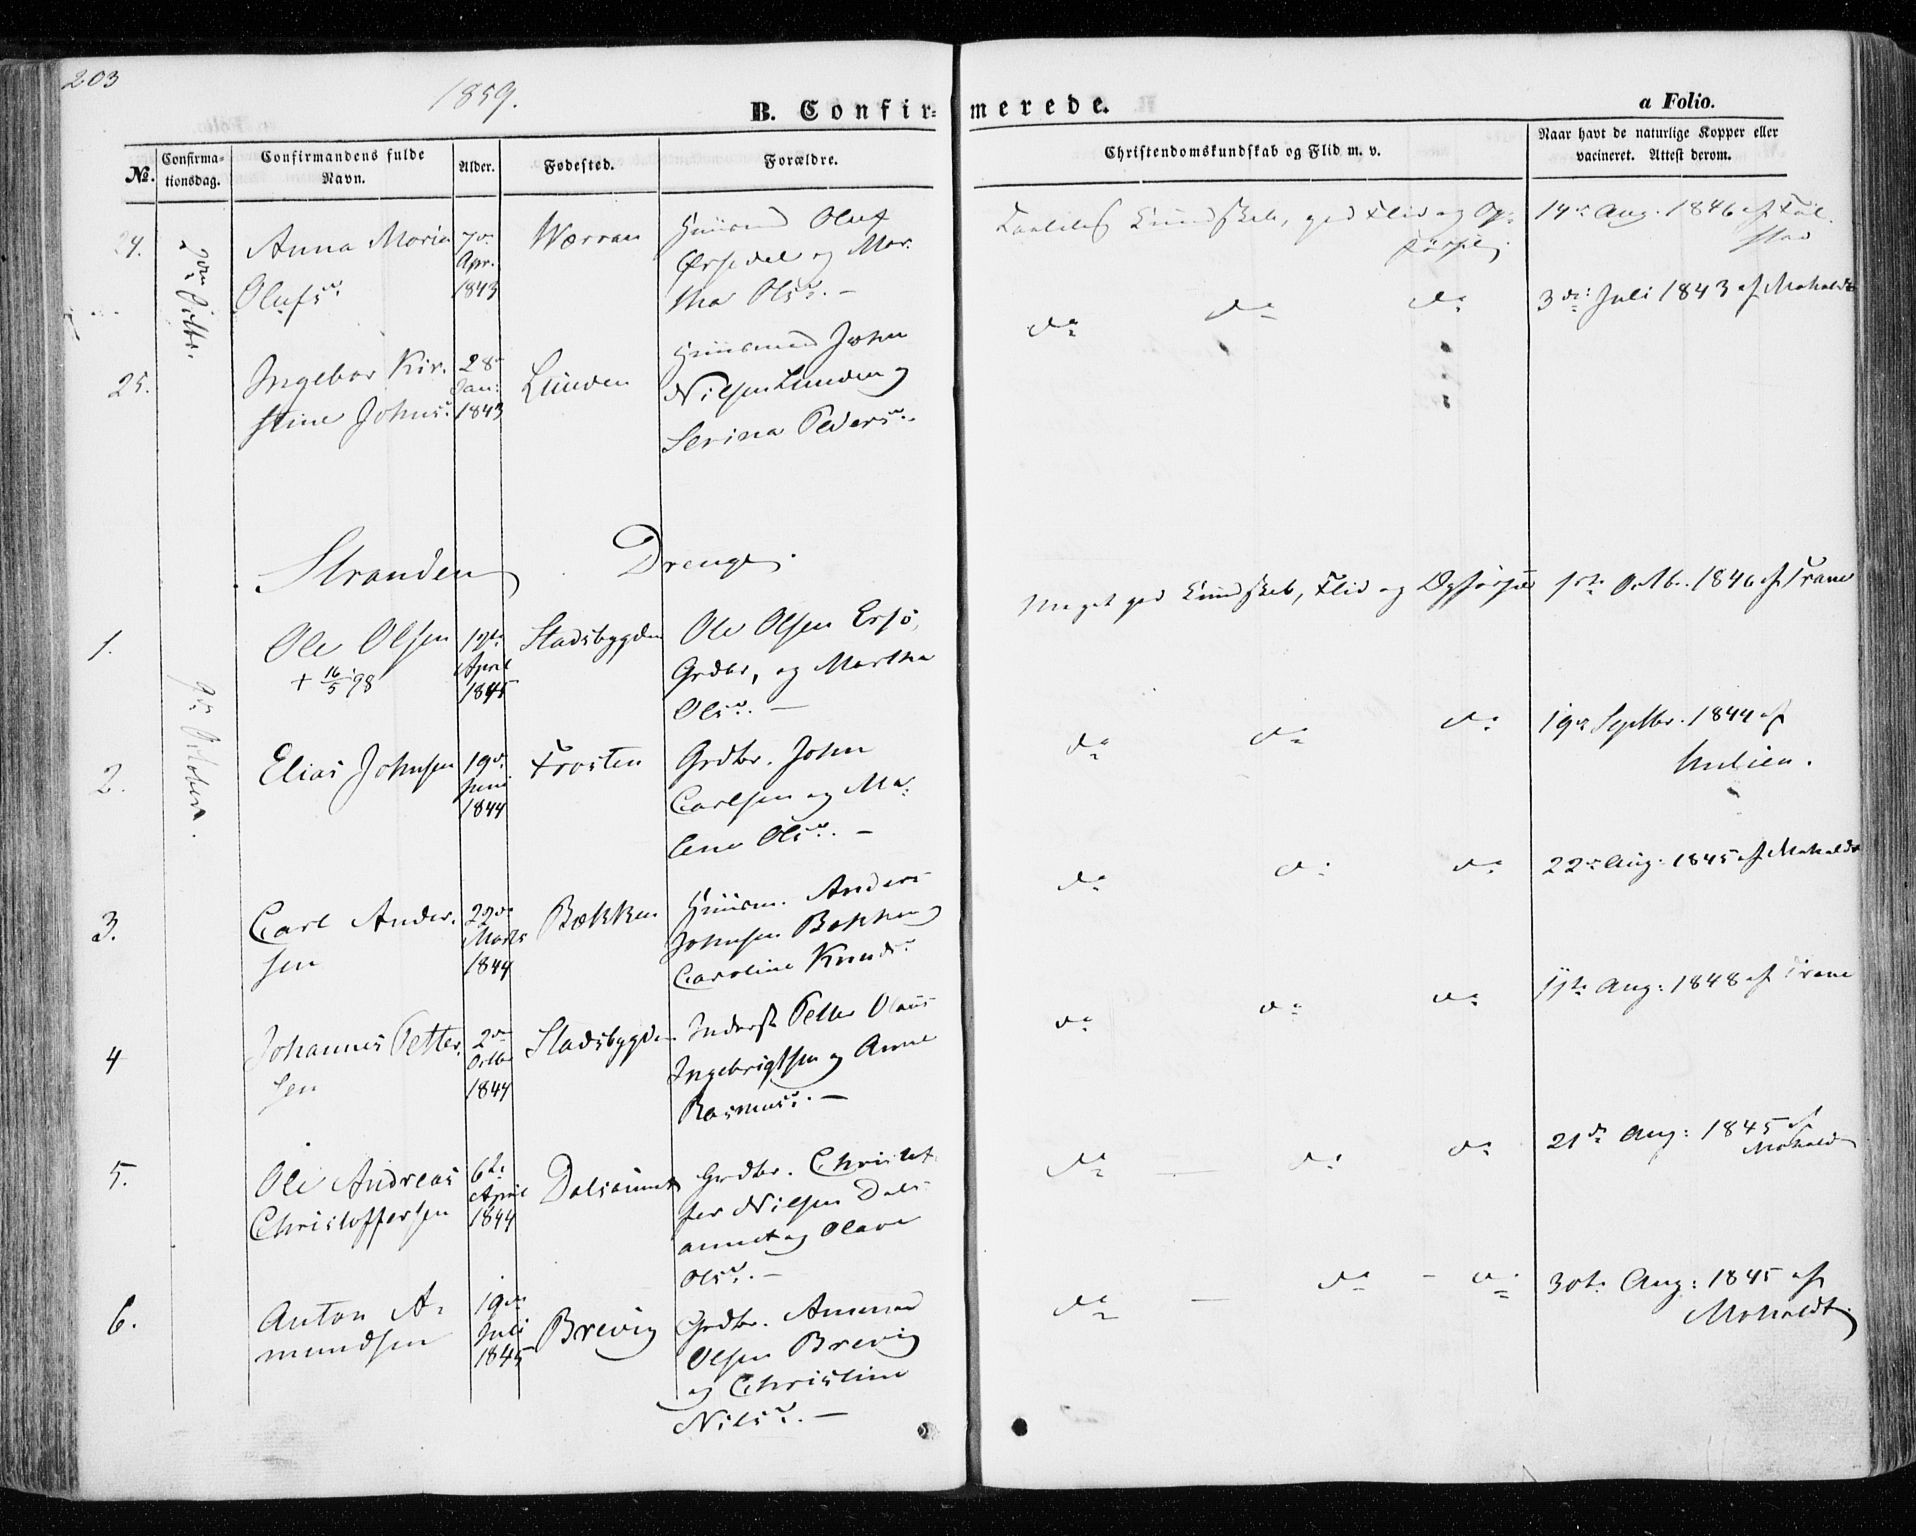 203
1859.
B. Confir-
merede.
a Folio.
No.
Confirma-
tionsdag.
Confirmandens fulde
Navn.
Alder.
Fødested.
Forældre.
Christendomskundskab og Flid m. v.
Naar havt de naturlige Kopper eller
vacineret. Attest derom.
24.
Anna Maria
Olufsd.
7de
Apr.
1843
Værran
Huusmd Oluf
og Mar-
tha Olsd. —
Kundskab, god Flid og Op-
førsel.
14de Aug. 1846 af
25.
Ingebor Kir-
stine Johnsd.
28de
Jan:
1843
Lunden
Huusmand John
Nilsen Lunden og
Serina Pedersd.
do do do
3die Juli 1843 af Moholdt
Stranden
Drenge.
9de October.
1.
Ole Olsen
+ 16/5 98
April
1845
Stadsbygden
Ole Olsen
Grdbr, og Martha
Olsd. —
Meget god Kundskab, Flid og Opførsel
1ste Octb. 1846 af Trane
2.
Elias Johnsen
19de
Juni
1844
Frosten
Grdbr. John
Carlsen og Ma-
lene Olsd. —
do do do
19de Septbr. 1844 af
3.
Carl Ander-
sen
22de
Marts
1844
Bækken
Huusm. Anders
Johnsen Bækken og
Caroline Knudsd.
do do do
22de Aug: 1845 af Moholdt
4
Johannes Petter-
sen
2den
Octbr
1844
Stadsbygden
Inderst Petter Olaus
Ingebrigtsen og Anne
Rasmusd. —
do do do
11te Aug: 1848 af Trane
5.
Ole Andreas
Christoffersen
6te
April
1844
Dalsaunet
Grdbr. Christof-
fer Nilsen Dals-
aunet og Olava
Olsd. —
do — do do
21de Aug: 1845 af
Moholdt
6.
Anton A-
mundsen
19de
Juli
1845
Brevig
Grdbr. Amund
Olsen Brevig
og Christine
Nilsd. —
do — do - do
30te Aug: 1845 af
Moholdt.